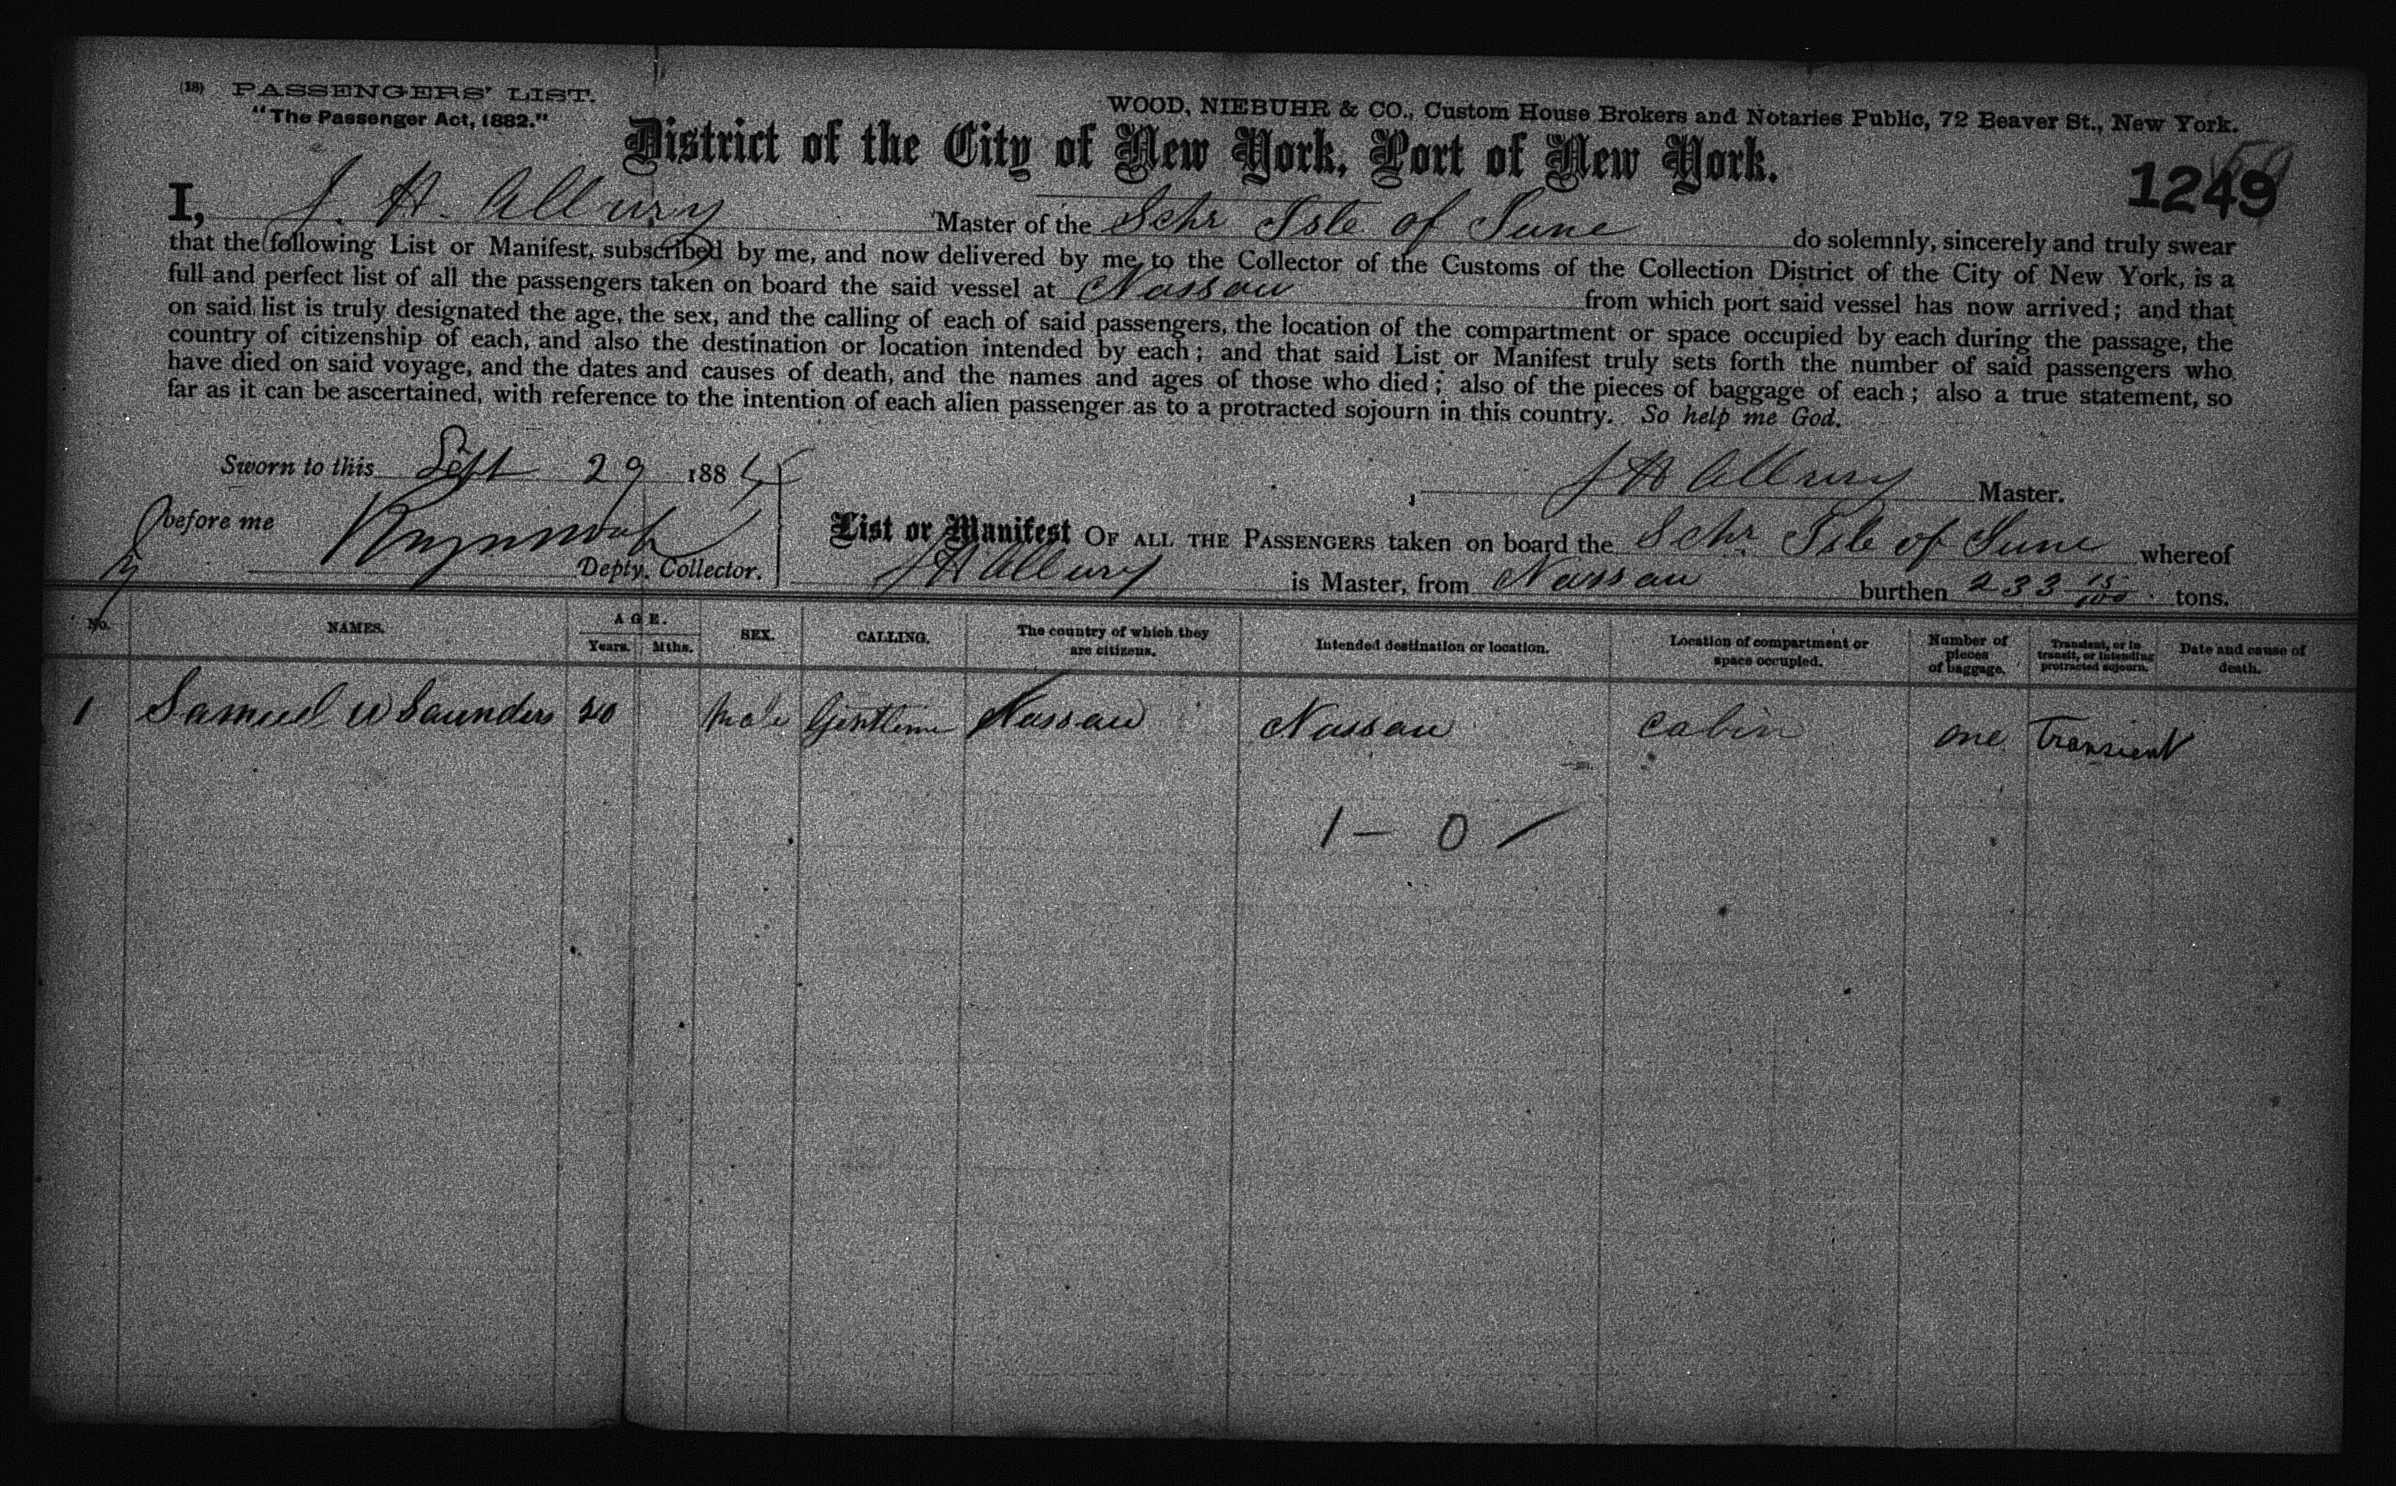 (18) PASSENGERS' LIST.
"The Passenger Act, 1882."
WOOD, NIEBUHR & CO., Custom House Brokers and Notaries Public, 72 Beaver St., New York.
District of the City of New York, Port of New York.
1249
I, J. H. Albury Master of the Schr Isle of June do solemnly, sincerely and truly swear
that the following List or Manifest, subscribed by me, and now delivered by me to the Collector of the Customs of the Collection District of the City of New York, is a
full and perfect list of all the passengers taken on board the said vessel at Nassau from which port said vessel has now arrived; and that
on said list is truly designated the age, the sex, and the calling of each of said passengers, the location of the compartment or space occupied by each during the passage, the
country of citizenship of each, and also the destination or location intended by each; and that said List or Manifest truly sets forth the number of said passengers who
have died on said voyage, and the dates and causes of death, and the names and ages of those who died; also of the pieces of baggage of each; also a true statement, so
far as it can be ascertained, with reference to the intention of each alien passenger as to a protracted sojourn in this country. So help me God.
Sworn to this Sept 29 188
J H Albury Master.
before me
Depty. Collector.
List or Manifest OF ALL THE PASSENGERS taken on board the Schr Isle of June whereof
J H Albury is Master, from Nassau burthen 233 15/100 tons.
No. NAMES. AGE. Years. Mths. SEX. CALLING. The country of which they are citizens. Intended destination or location. Location of compartment or space occupied. Number of pieces of baggage. Transient, or in transit, or intending protracted sojourn. Date and cause of death.
1 Samuel W Saunders male Gentleme Nassau Nassau cabin one Transient
1 — 0